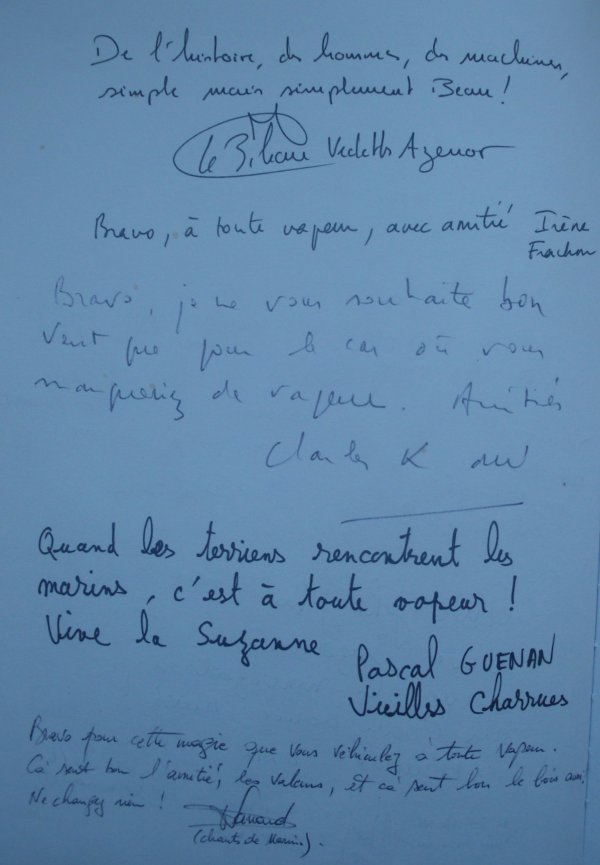 De l'histoire, des hommes, des machines,
simple mais simplement Beau !
Le Bihan Vedettes Azenor
Bravo, à toute vapeur, avec amitié Irène
Frachon
Bravo, je ne vous souhaite bon
vent que pour le cas où vous
manqueriez de vapeur. Amitiés
Charles K
Quand les terriens rencontrent les
marins, c'est à toute vapeur !
Vive la Suzanne
Pascal GUENAN
Vieilles Charrues
Bravo pour cette magie que vous véhiculez à toute vapeur.
Cà sent bon l'amitié, les valeurs, et cà sent bon le bois aussi
Ne changez rien !
(chants de Marins).